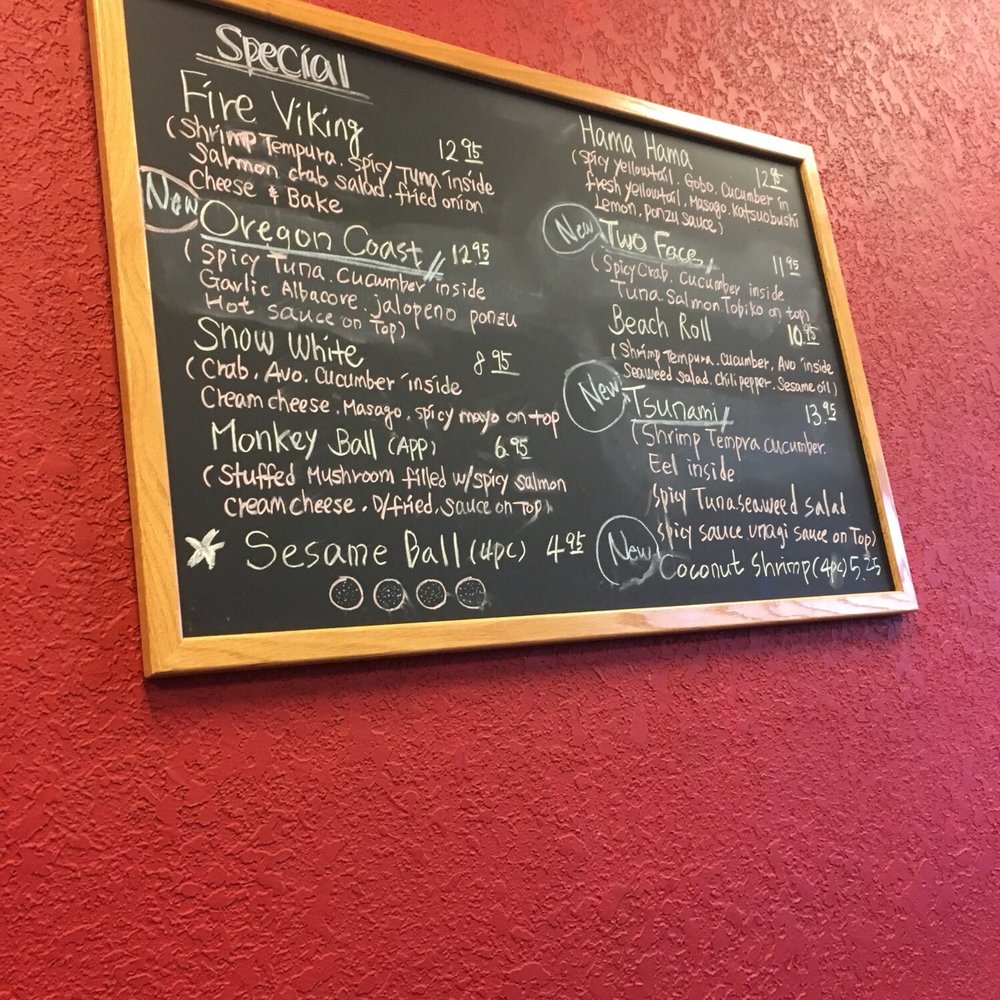 Special
Fire Viking 12.95
(Shrimp Tempura. Spicy Tuna inside
Salmon crab salad. fried onion
Cheese & Bake
New Oregon Coast 12.95
(Spicy Tuna. cucumber inside
Garlic Albacore. jalopeno ponzu
Hot sauce on Top)
Snow White 8.95
(Crab. Avo. Cucumber inside
Cream cheese. Masago. spicy mayo on top
Monkey Ball (APP) 6.95
(Stuffed Mushroom filled w/spicy salmon
cream cheese. D/fried, sauce on Top)
Sesame Ball (4pc) 4.95
Hama Hama 12.95
(Spicy yellowtail. Gobo. Cucumber in
fresh yellowtail. Masago. Katsuobushi
Lemon. ponzu sauce)
New Two Face 11.95
(Spicy Crab. cucumber inside
Tuna. Salmon. Tobiko on top)
Beach Roll 10.95
(Shrimp Tempura. cucumber. Avo inside
Seaweed salad. chili pepper. Sesame oil)
New Tsunami 13.95
(Shrimp Tempra cucumber.
Eel inside
Spicy Tuna. seaweed salad
spicy sauce unagi sauce on Top)
New Coconut Shrimp (4pc) 5.25